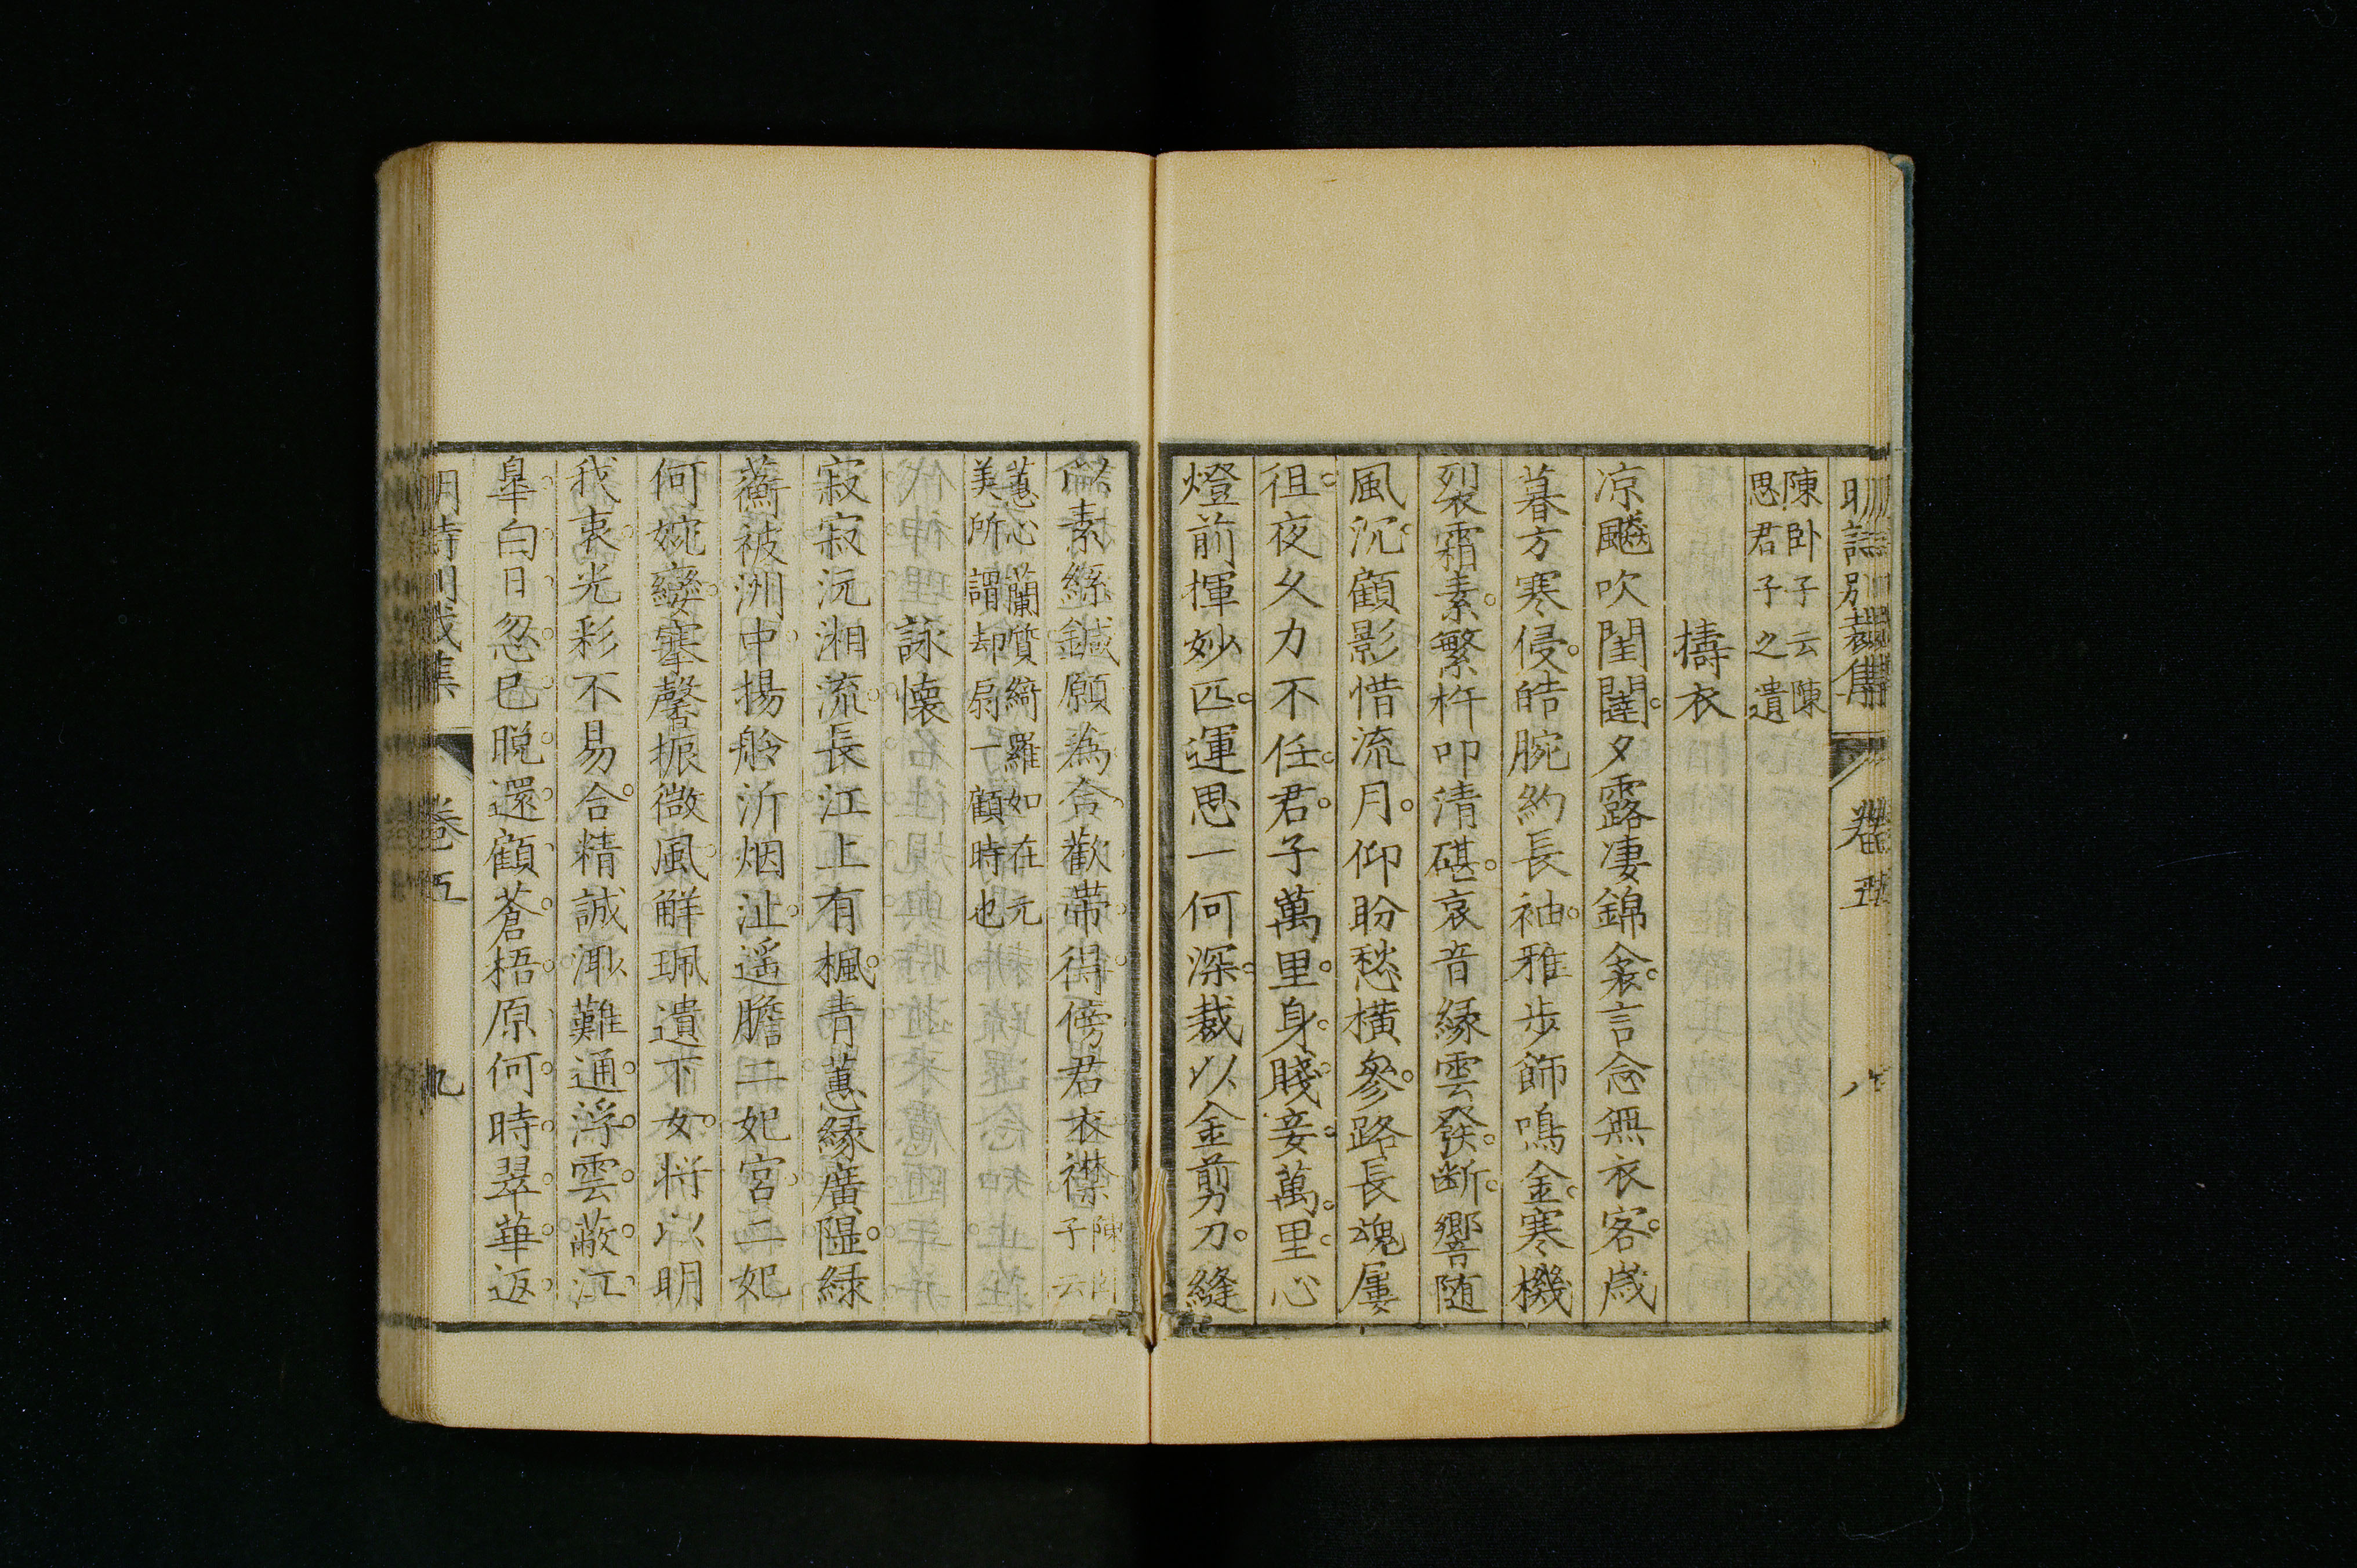 明詩別裁集 卷五 八
陳卧子云陳
思君子之遺
擣衣
凉飈吹閨闥夕露凄錦衾言念無衣客歳
暮方寒侵皓腕約長袖雅步飾鳴金寒機
裂霜素繁杵叩清碪哀音緣雲發斷響随
風沉顧影惜流月仰盼愁横參路長魂屢
徂夜久力不任君子萬里身賤妾萬里心
燈前揮妙匹運思一何深裁以金剪刀縫
以素絲鍼願為合歡帶得傍君衣襟
陳卧
子云
蕙心蘭質綺羅如在元
美所謂却扇一顧時也
詠懐
寂寂沅湘流長江上有楓青蕙緣廣隰緑
蘅被洲中揚舲泝烟沚遥瞻二妃宮二妃
何婉孌搴馨振微風解珮遺下女將以明
我衷光彩不易合精誠溆難通浮雲蔽江
皐白日忽已晚還顧蒼梧原何時翠華返
明詩別裁集 卷五 九